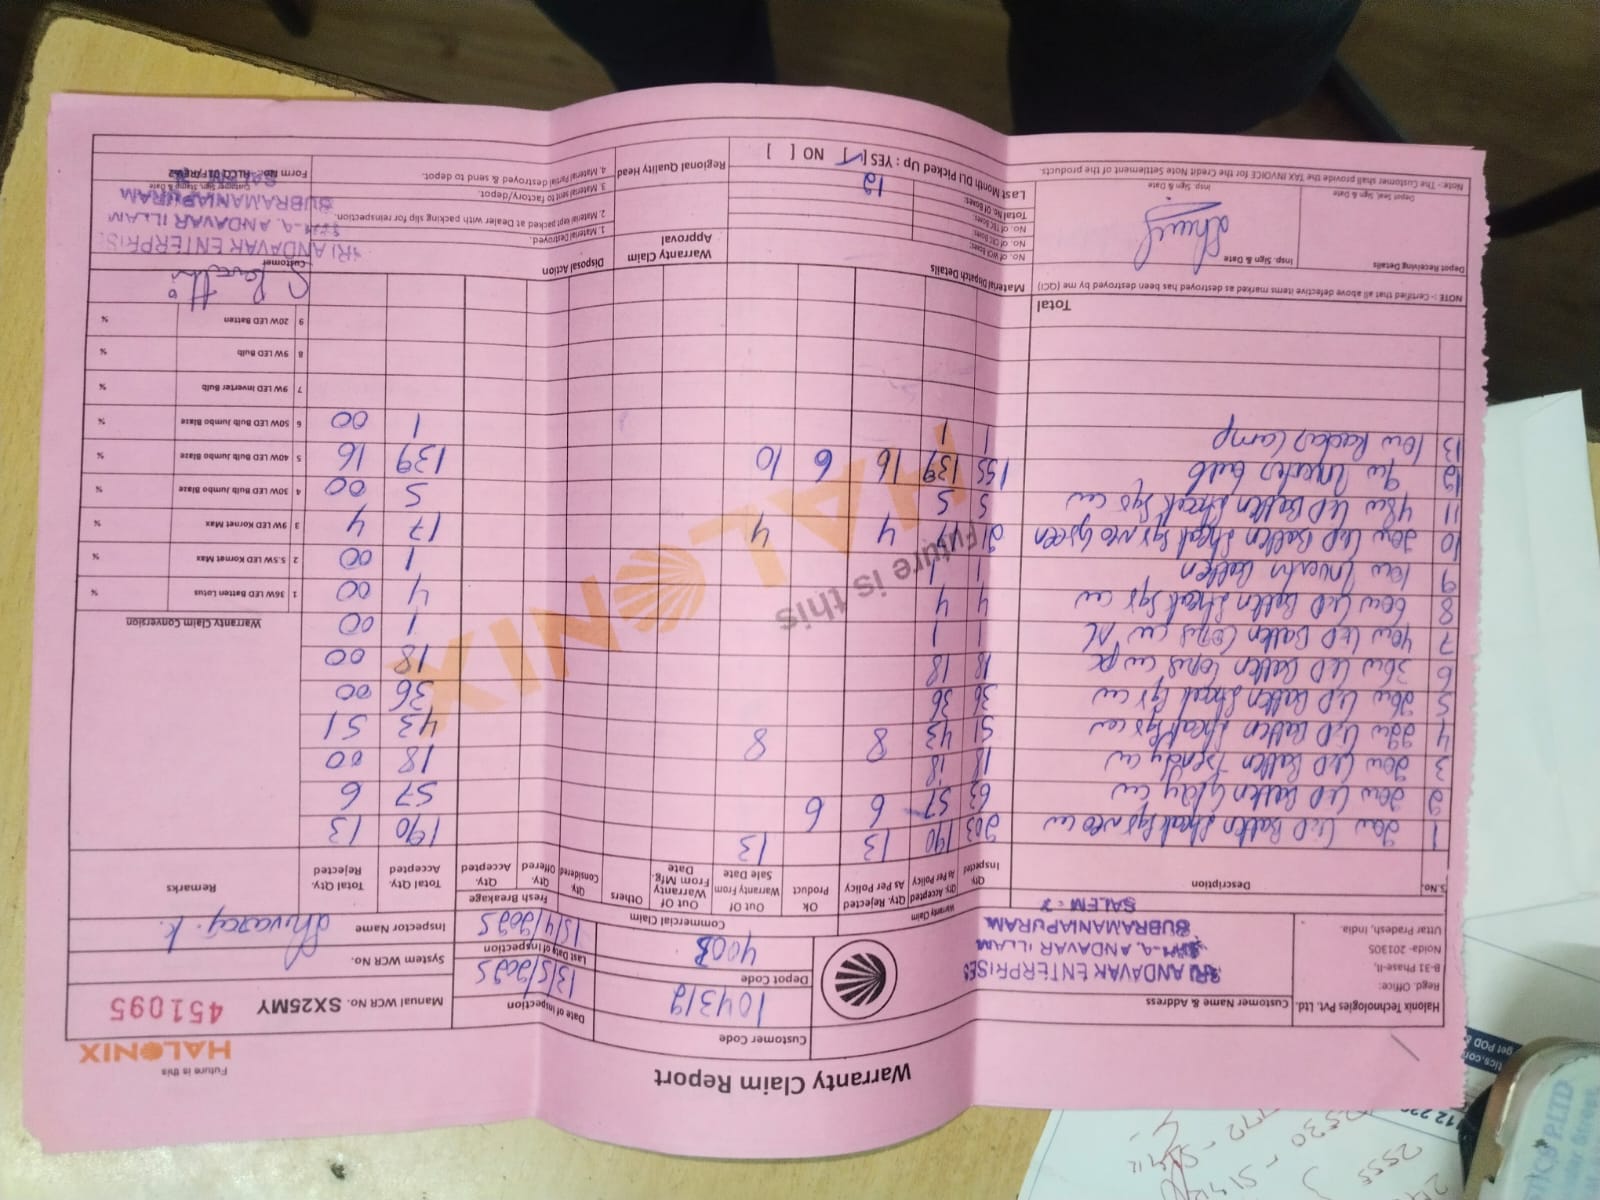 Warranty Claim Report
Future is this
HALONIX
Halonix Technologies Pvt. Ltd.
Regd. Office:
B-31 Phase-II,
Noida- 201305
Uttar Pradesh, India.
Customer Name & Address
SRI ANDAVAR ENTERPRISES
ANDAVAR ILLAM
SUBRAMANIAPURAM
SALEM
Customer Code
104319
Depot Code
4003
Date of Inspection
13/5/2025
Last Date of Inspection
15/4/2025
Manual WCR No. SX25MY 451095
System WCR No.
Inspector Name
Shivaraj. k.
S.No. Description Qty. Inspected Warranty Claim Qty. Accepted As Per Policy Qty. Rejected As Per Policy Commercial Claim Ok Product Out Of Warranty From Sale Date Out Of Warranty From Mfg. Date Others Fresh Breakage Qty. Considered Qty. Offered Qty. Accepted Total Qty. Accepted Total Qty. Rejected Remarks
1 20w LED Batten Streak Sqr neo cw 203 190 13 13 190 13
2 20w LED Batten Glay cw 63 57 6 6 57 6
3 20w LED Batten Trendy cw 18 18 18 00
4 22w LED Batten Streak Sqr cw 51 43 8 8 43 51
5 26w LED Batten Streak Sqr cw 36 36 36 00
6 36w LED Batten cw 18 18 18 00
7 40w LED Batten cw 1 1 1 00
8 60w LED Batten Streak Sqr cw 4 4 4 00
9 10w Inverter Batten 1 1 1 00
10 20w LED Batten Streak Sqr neo Green 21 17 4 4 17 4
11 48w LED Batten Streak Sqr cw 5 5 5 00
12 9w Inverter bulb 155 139 16 6 10 139 16
13 10w Radar Lamp 1 1 1 00
Total
Warranty Claim Conversion
1 36W LED Batten Lotus %
2 5.5W LED Kornet Max %
3 9W LED Kornet Max %
4 30W LED Bulb Jumbo Blaze %
5 40W LED Bulb Jumbo Blaze %
6 50W LED Bulb Jumbo Blaze %
7 9W LED Inverter Bulb %
8 9W LED Bulb %
9 20W LED Batten %
HALONIX
Future is this
NOTE :- Certified that all above defective items marked as destroyed has been destroyed by me (QCI)
Depot Receiving Details
Insp. Sign & Date
Depot Seal, Sign & Date
Insp. Sign & Date
Note:- The Customer shall provide the TAX INVOICE for the Credit Note Settlement of the products.
Material Dispatch Details
No. of WCR Boxes:
No. of CFC Boxes:
No. of TEC Boxes:
Total No. Of Boxes:
12
Last Month DLI Picked Up : YES [✓] NO [ ]
Warranty Claim Approval
Regional Quality Head
Disposal Action
1. Material Destroyed.
2. Material kept packed at Dealer with packing slip for reinspection.
3. Material sent to factory/depot.
4. Material Partial destroyed & send to depot.
Customer
SRI ANDAVAR ENTERPRISE
ANDAVAR ILLAM
SUBRAMANIAPURAM
Customer Sign, Stamp & Date
Form No.: HLCQ 01F/REV-2